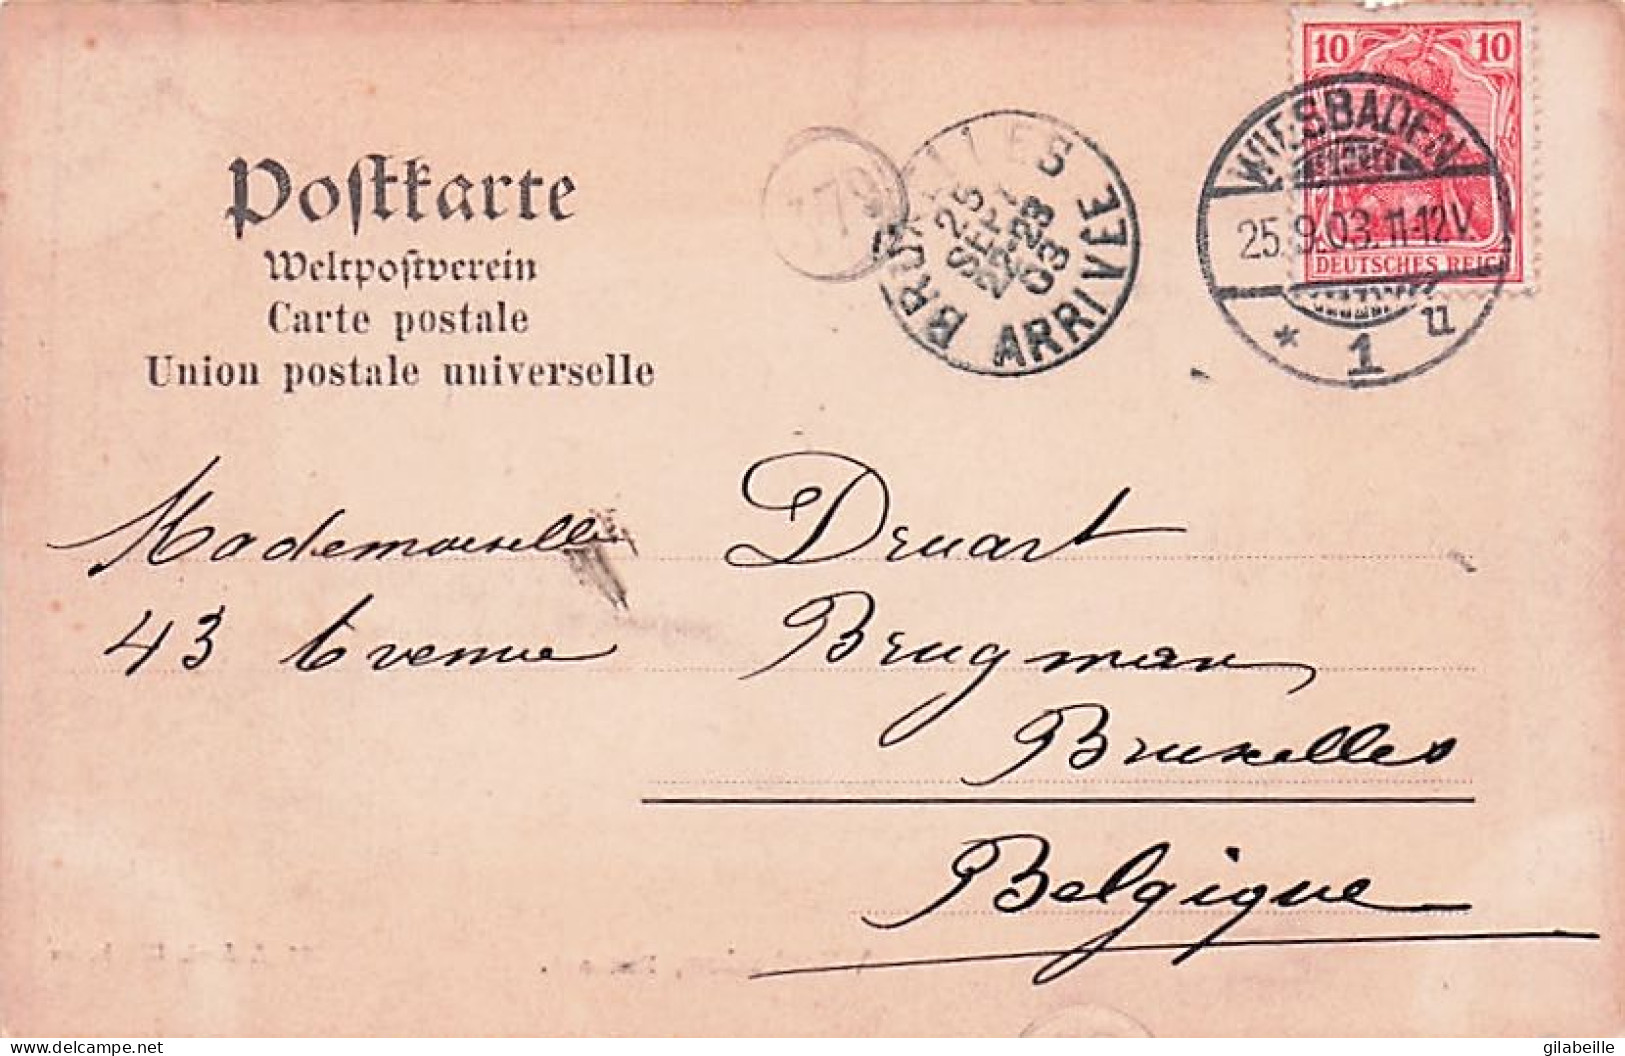 10 10
DEUTSCHES REICH
WIESBADEN
25.9.03.11-12V.
* 1 u
BRUXELLES
25
SEPT
22-23
03
ARRIVÉE
179
Postkarte
Weltpostverein
Carte postale
Union postale universelle
Mademoiselle Druart
43 Avenue Brugman
Bruxelles
Belgique
delcampe.net
gilabeille